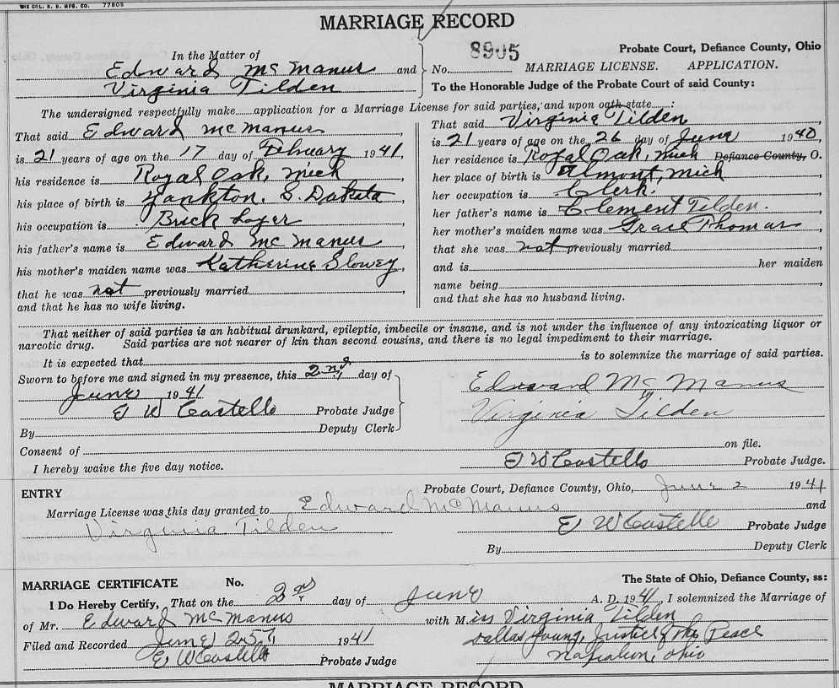 THE COL. B. B. MFG. CO. 77805
MARRIAGE RECORD
In the Matter of
Edward McManus and
Virginia Tilden
No. 8905
Probate Court, Defiance County, Ohio
MARRIAGE LICENSE. APPLICATION.
To the Honorable Judge of the Probate Court of said County:
The undersigned respectfully make application for a Marriage License for said parties, and upon oath state :
That said Edward McManus
is 21 years of age on the 17 day of February 1941,
his residence is Royal Oak, Mich
his place of birth is Yankton, S. Dakota
his occupation is Brick Layer
his father's name is Edward McManus
his mother's maiden name was Katherine Slowey,
that he was not previously married
and that he has no wife living.
That said Virginia Tilden
is 21 years of age on the 26 day of June 1940
her residence is Royal Oak, Mich Defiance County, O.
her place of birth is Almont, Mich
her occupation is Clerk.
her father's name is Clement Tilden.
her mother's maiden name was Grace Thomas
that she was not previously married
and is her maiden
name being
and that she has no husband living.
That neither of said parties is an habitual drunkard, epileptic, imbecile or insane, and is not under the influence of any intoxicating liquor or
narcotic drug. Said parties are not nearer of kin than second cousins, and there is no legal impediment to their marriage.
It is expected that is to solemnize the marriage of said parties.
Sworn to before me and signed in my presence, this 2nd day of
June 1941
E W Costello Probate Judge
By Deputy Clerk
Edward McManus
Virginia Tilden
Consent of on file.
I hereby waive the five day notice.
E W Costello Probate Judge.
ENTRY
Probate Court, Defiance County, Ohio, June 2 1941
Marriage License was this day granted to Edward McManus and
Virginia Tilden
E W Costello Probate Judge
By Deputy Clerk
MARRIAGE CERTIFICATE No.
The State of Ohio, Defiance County, ss:
I Do Hereby Certify, That on the 2nd day of June A. D. 1941 I solemnized the Marriage of
of Mr. Edward McManus with Miss Virginia Tilden
Filed and Recorded June 1941
Dallas Young, Justice of the Peace
E W Costello Probate Judge
Napoleon, Ohio
MARRIAGE RECORD